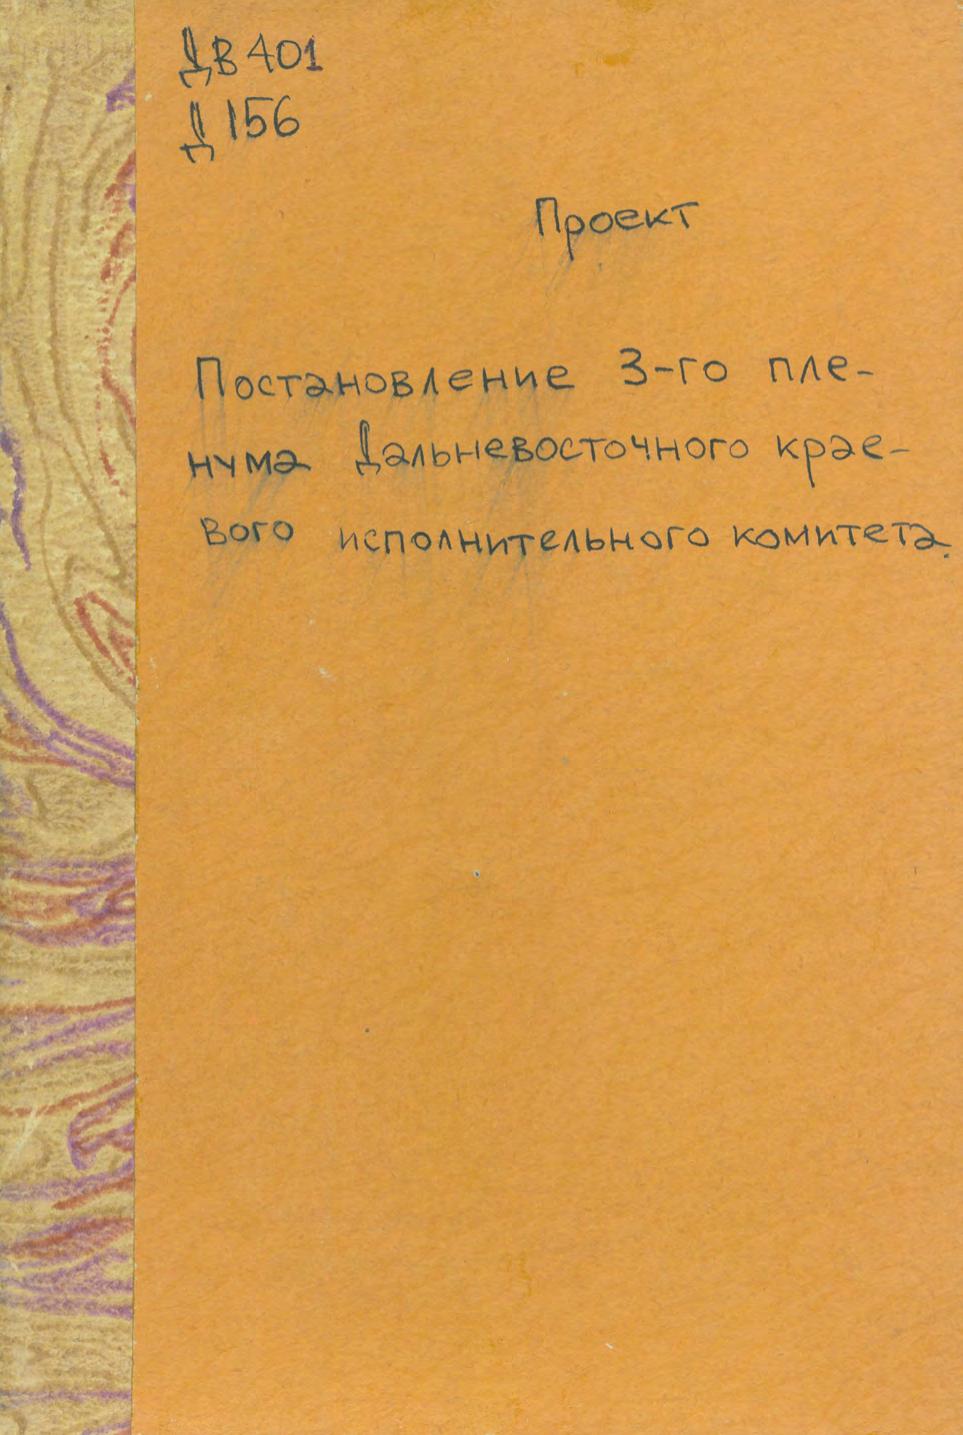 ДВ 401
Д 156
Проект
Постановление 3-го пле-
нума Дальневосточного крае-
вого исполнительного комитета.